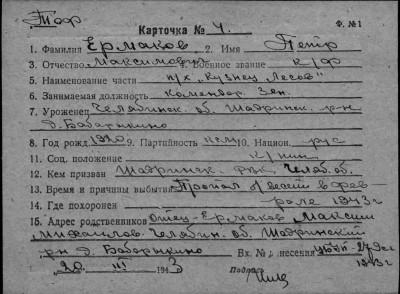 Тоф
Карточка № 4. Ф. №1
1. Фамилия Ермаков 2. Имя Петр
3. Отчество Максимович 4. Военное звание к/ф
5. Наименование части п/х "Кузнец Лесов"
6. Занимаемая должность Командор. Зен.
7. Уроженец Челябинск. об. Шадринск. р-н
д. Бабарыкино
8. Год рожд 1920 9. Партийность 10. Национ. рус
11. Соц. положение
12. Кем призван Шадринск. РВК. Челяб. об.
13. Время и причины выбытия Пропал б/вести в фев
14. Где похоронен рале 1943 г
15. Адрес родственников Отец - Ермаков Максим
Михайлов. Челябин. об. Шадринский
рн д. Бабарыкино Вх. № донесения
20. III 1943 1943 г
Подпись